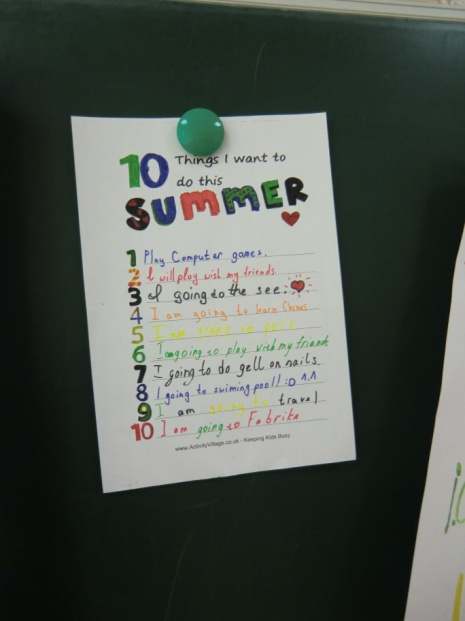 10 Things I want to
do this
SUMMER
1 Play Computer games.
2 I will play wish my friends.
3 I going to the see.
4 I am going to learn Chines
5 I am going to
6 I agoing to play vith my friends
7 I going to do gell on nails.
8 I going to swiming pool! :D ^.^
9 I am going to travel
10 I am going to Fabrika
www.ActivityVillage.co.uk - Keeping Kids Busy